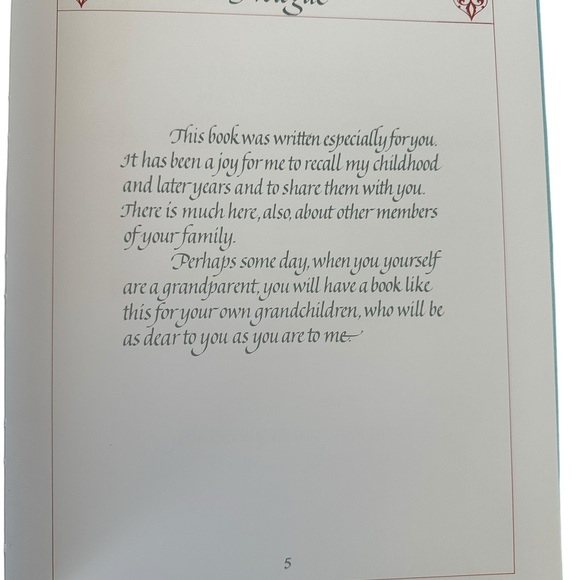 Prologue
This book was written especially for you.
It has been a joy for me to recall my childhood
and later years and to share them with you.
There is much here, also, about other members
of your family.
Perhaps some day, when you yourself
are a grandparent, you will have a book like
this for your own grandchildren, who will be
as dear to you as you are to me
5